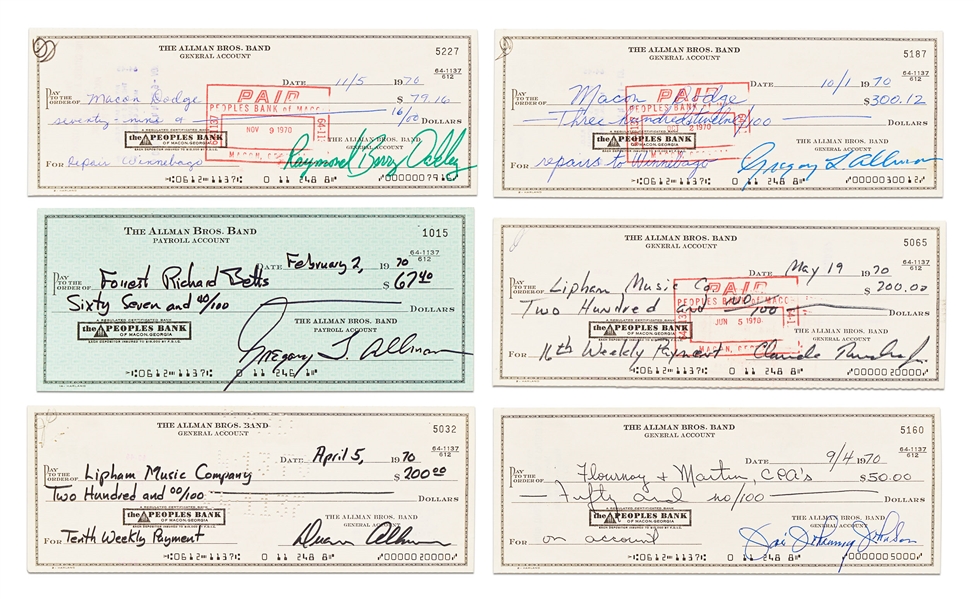 THE ALLMAN BROS. BAND
GENERAL ACCOUNT
5227
64-1137
612
DATE 11/5 1970
PAY
TO THE
ORDER OF Macon Dodge $ 79.16
seventy-nine & 16/00 DOLLARS
PAID
PEOPLES BANK of MACON
NOV 9 1970
64-1137
MACON, GEORGIA
the PEOPLES BANK
OF MACON, GEORGIA
THE ALLMAN BROS. BAND
GENERAL ACCOUNT
FOR repair Winnebago Raymond Berry Oakley
⑆0612⑉1137⑆ 0 11 248 8⑈ ⑈0000007916⑈
THE ALLMAN BROS. BAND
GENERAL ACCOUNT
5187
64-1137
612
10/1 1970
PAY
TO THE
ORDER OF Macon Dodge $300.12
Three hundred twelve/100 DOLLARS
PAID
PEOPLES BANK of MACON
2 1970
the PEOPLES BANK
OF MACON, GEORGIA
THE ALLMAN BROS. BAND
GENERAL ACCOUNT
FOR repairs to Winnebago Gregory L. Allman
⑆0612⑉1137⑆ 0 11 248 8⑈ ⑈0000030012⑈
THE ALLMAN BROS. BAND
PAYROLL ACCOUNT
1015
64-1137
612
DATE February 2, 1970
PAY
TO THE
ORDER OF Forrest Richard Betts $ 67 40
Sixty Seven and 40/100 DOLLARS
the PEOPLES BANK
OF MACON, GEORGIA
THE ALLMAN BROS. BAND
PAYROLL ACCOUNT
Gregory L. Allman
⑆0612⑉1137⑆ 0 11 246 1⑈
THE ALLMAN BROS. BAND
GENERAL ACCOUNT
5065
64-1137
612
DATE May 19 1970
PAY
TO THE
ORDER OF Lipham Music Co. $ 200.00
Two Hundred and 100/100 DOLLARS
PAID
PEOPLES BANK of MACON
JUN 5 1970
MACON, GEORGIA
the PEOPLES BANK
OF MACON, GEORGIA
THE ALLMAN BROS. BAND
GENERAL ACCOUNT
FOR 16th Weekly Payment
⑆0612⑉1137⑆ 0 11 248 8⑈ ⑈0000020000⑈
THE ALLMAN BROS. BAND
GENERAL ACCOUNT
5032
64-1137
612
DATE April 5, 1970
PAY
TO THE
ORDER OF Lipham Music Company $ 200 00
Two Hundred and 00/100 DOLLARS
the PEOPLES BANK
OF MACON, GEORGIA
THE ALLMAN BROS. BAND
GENERAL ACCOUNT
FOR Tenth Weekly Payment Duane Allman
⑆0612⑉1137⑆ 0 11 248 8⑈ ⑈0000020000⑈
THE ALLMAN BROS. BAND
GENERAL ACCOUNT
5160
64-1137
612
DATE 9/4 1970
PAY
TO THE
ORDER OF Flournoy & Martin, CPA's $50.00
Fifty and no/100 DOLLARS
the PEOPLES BANK
OF MACON, GEORGIA
THE ALLMAN BROS. BAND
GENERAL ACCOUNT
FOR on account Jai Johanny Johanson
⑆0612⑉1137⑆ 0 11 248 8⑈ ⑈000005000⑈